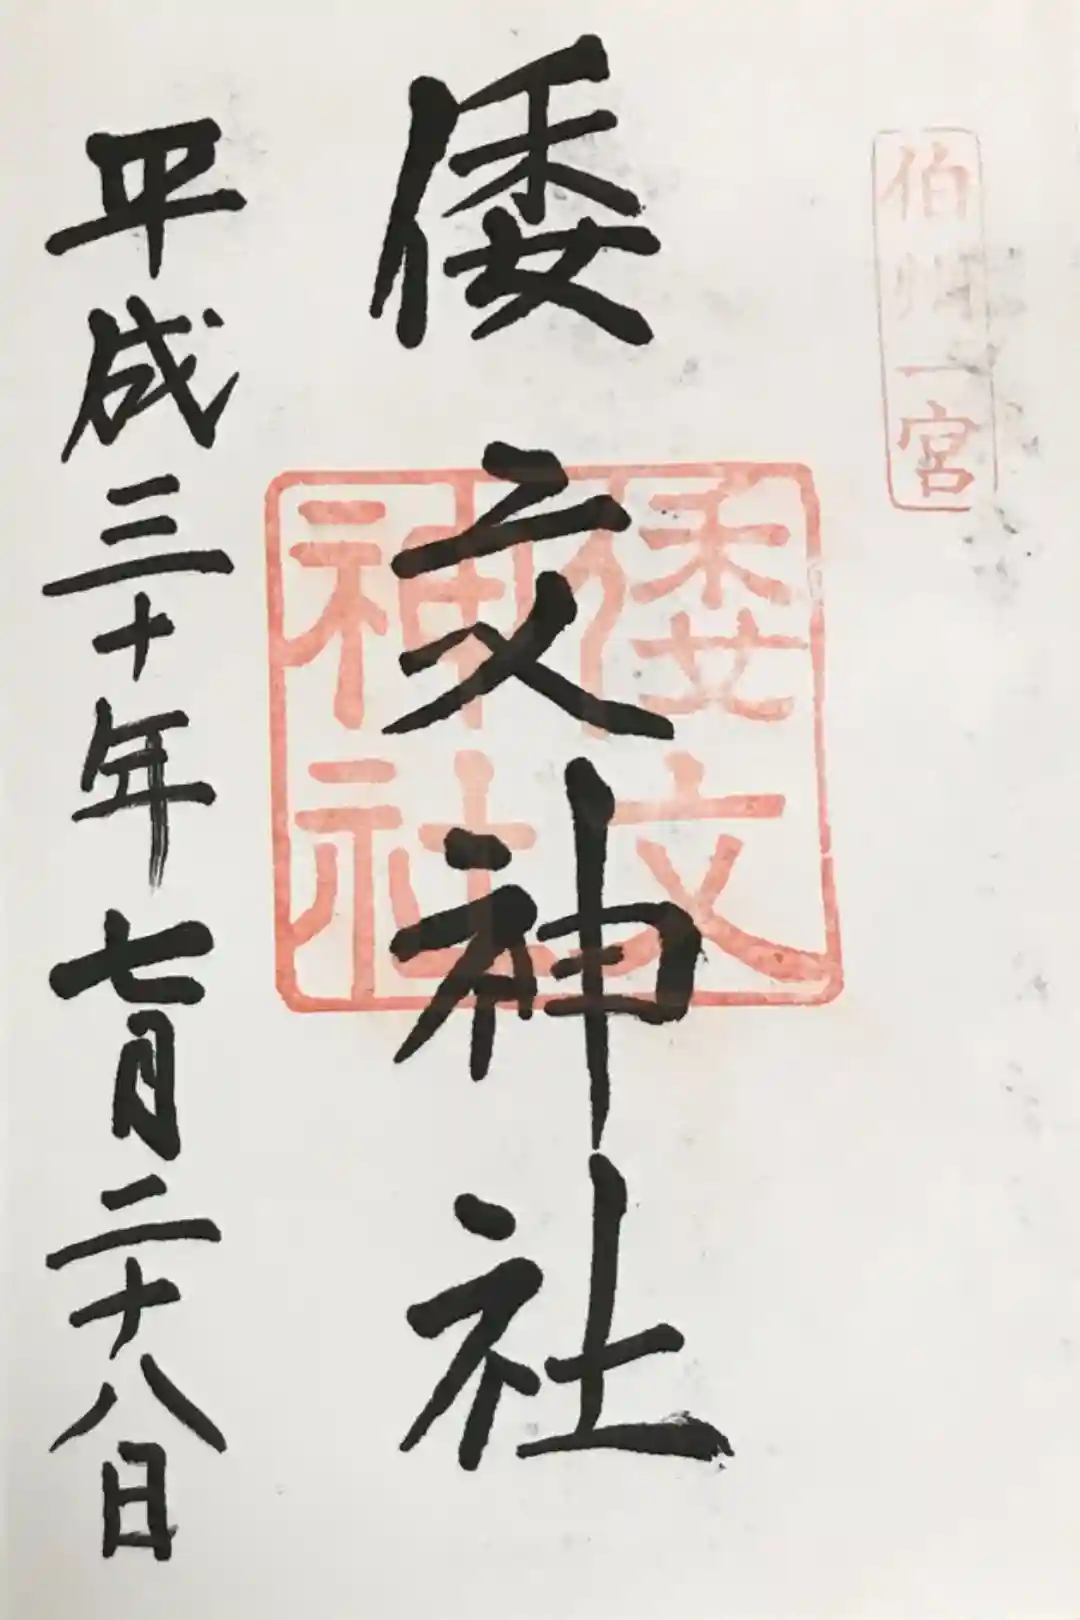 伯州一宮
倭文神社
倭文
神社
平成三十年七月二十八日